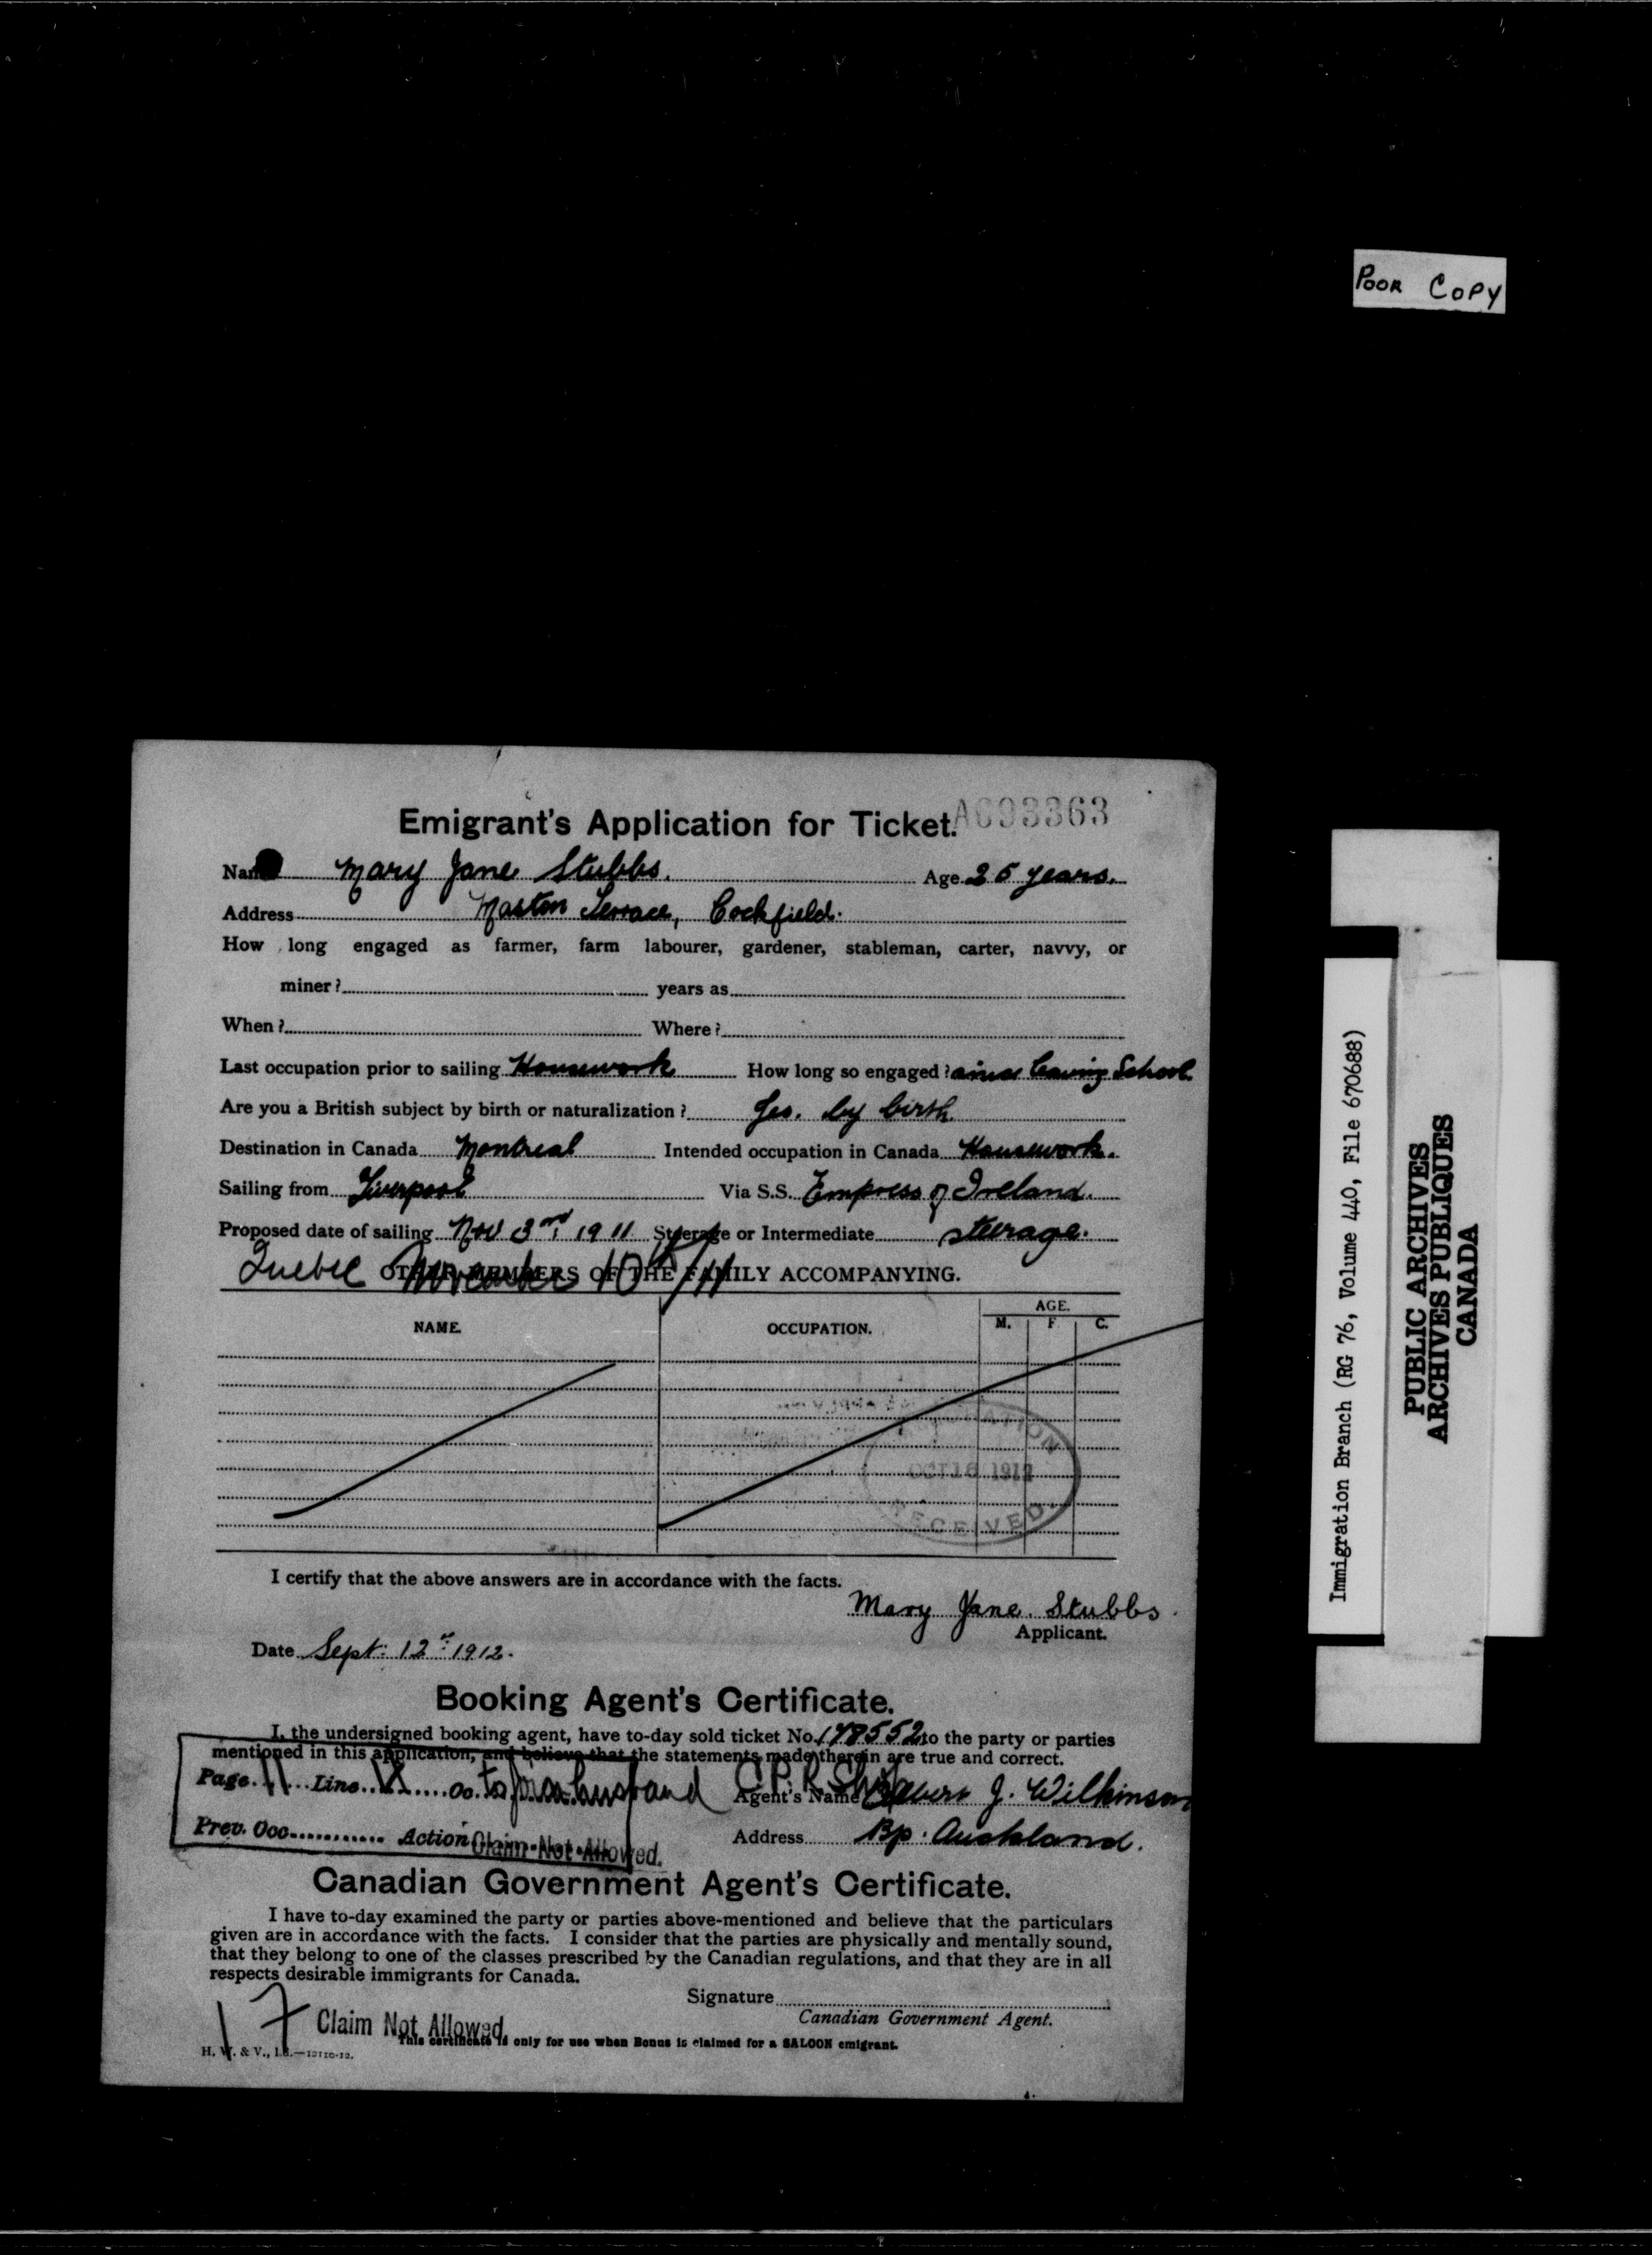 POOR COPY
Emigrant's Application for Ticket. A093363
Name Mary Jane Stubbs. Age 25 years.
Address Maston Terrace, Cockfield.
How long engaged as farmer, farm labourer, gardener, stableman, carter, navvy, or
miner? years as
When? Where?
Last occupation prior to sailing Housework How long so engaged? since leaving School.
Are you a British subject by birth or naturalization? Yes. by birth
Destination in Canada Montreal Intended occupation in Canada Housework.
Sailing from Liverpool Via S.S. Empress of Ireland.
Proposed date of sailing Nov 3rd 1911 Steerage or Intermediate steerage.
Quebec November 10th/11
OTHER MEMBERS OF THE FAMILY ACCOMPANYING.
NAME. OCCUPATION. AGE.
M. F. C.
OCT 16 1912
RECEIVED
I certify that the above answers are in accordance with the facts.
Mary Jane Stubbs.
Applicant.
Date Sept: 12th 1912.
Booking Agent's Certificate.
I, the undersigned booking agent, have to-day sold ticket No. 148552 to the party or parties
mentioned in this application, and believe that the statements made therein are true and correct.
Page 11 Line Oc. to join husband C.P.R. Ship Agent's Name J. Wilkinson
Prev. Occ. Action Claim Not Allowed. Address Bp. Auckland.
Canadian Government Agent's Certificate.
I have to-day examined the party or parties above-mentioned and believe that the particulars
given are in accordance with the facts. I consider that the parties are physically and mentally sound,
that they belong to one of the classes prescribed by the Canadian regulations, and that they are in all
respects desirable immigrants for Canada.
Signature
Canadian Government Agent.
17 Claim Not Allowed
This certificate is only for use when Bonus is claimed for a SALOON emigrant.
H. W. & V., Ld.—12110-12.
Immigration Branch (RG 76, Volume 440, File 670688)
PUBLIC ARCHIVES
ARCHIVES PUBLIQUES
CANADA